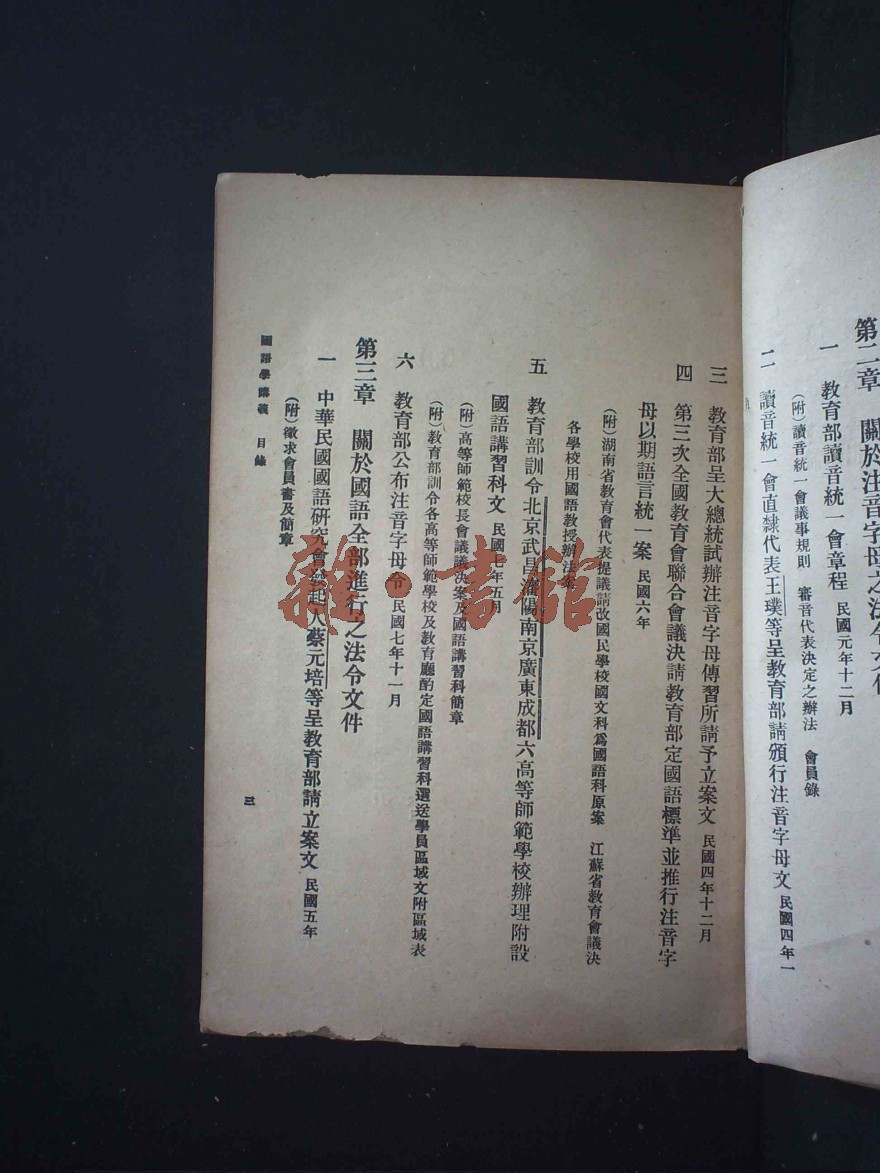 第二章　關於注音字母之法令文件
一　教育部讀音統一會章程　民國元年十二月
（附）讀音統一會議事規則　審音代表決定之辦法　會員錄
二　讀音統一會直隸代表王璞等呈教育部請頒行注音字母文　民國四年一
三　教育部呈大總統試辦注音字母傳習所請予立案文　民國四年十二月
四　第三次全國教育會聯合會議決請教育部定國語標準並推行注音字
母以期語言統一案　民國六年
（附）湖南省教育會代表提議請改國民學校國文科爲國語科原案　江蘇省教育會議決
各學校用國語教授辦法案
五　教育部訓令北京武昌瀋陽南京廣東成都六高等師範學校辦理附設
國語講習科文　民國七年五月
（附）高等師範校長會議議決案及國語講習科簡章
（附）教育部訓令各高等師範學校及教育廳酌定國語講習科選送學員區域文附區域表
六　教育部公布注音字母令　民國七年十一月
第三章　關於國語全部進行之法令文件
一　中華民國國語研究會發起人蔡元培等呈教育部請立案文　民國五年
（附）徵求會員書及簡章
國語學講義　目錄
三
雜·書館